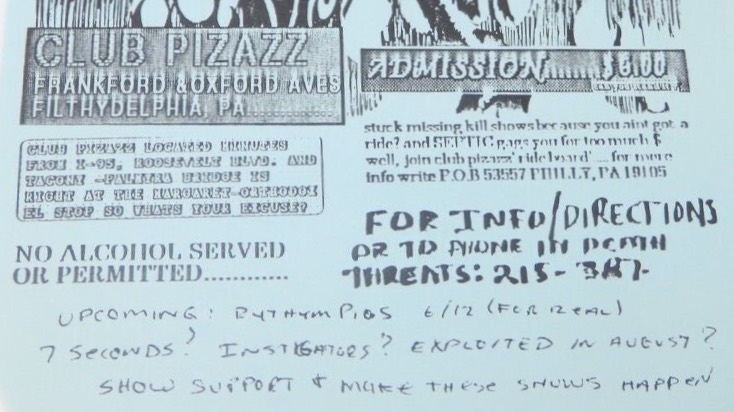 CLUB PIZAZZ
FRANKFORD & OXFORD AVES
FILTHYDELPHIA PA
ADMISSION......$6.00
CLUB PIZAZZ LOCATED MINUTES
FROM I-95, ROOSEVELT BLVD. AND
TACONY-PALMYRA BRIDGE IS
RIGHT AT THE MARGARET-ORTHODOX
EL STOP SO WHATS YOUR EXCUSE?
stuck missing kill shows because you aint got a
ride? and SEPTIC gags you for too much $
well, join club pizazz' 'ride board' ... for more
info write P.O.B 53557 PHILLY, PA 19105
NO ALCOHOL SERVED
OR PERMITTED............
FOR INFO/DIRECTIONS
OR TO PHONE IN DEATH
THREATS: 215-
UPCOMING: 6/12 (FOR REAL)
7 SECONDS? INSTIGATORS? EXPLOITED IN AUGUST?
SHOW SUPPORT & MAKE THESE SHOWS HAPPEN